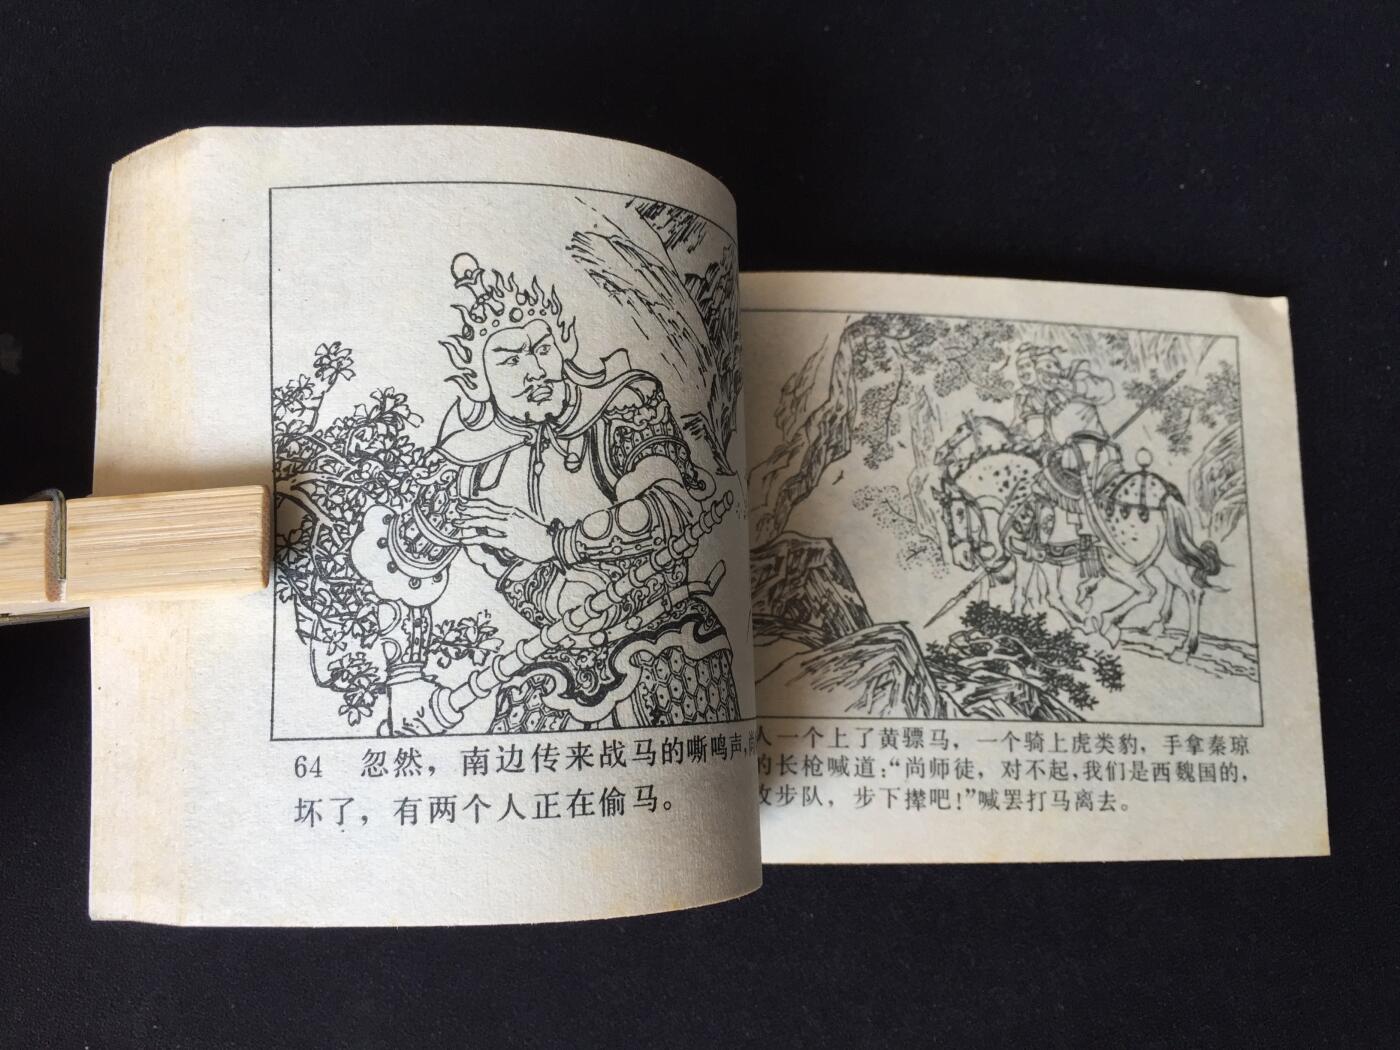 64 忽然，南边传来战马的嘶鸣声，尚
坏了，有两个人正在偷马。
人一个上了黄骠马，一个骑上虎类豹，手拿秦琼
的长枪喊道：“尚师徒，对不起，我们是西魏国的，
改步队，步下撵吧！”喊罢打马离去。